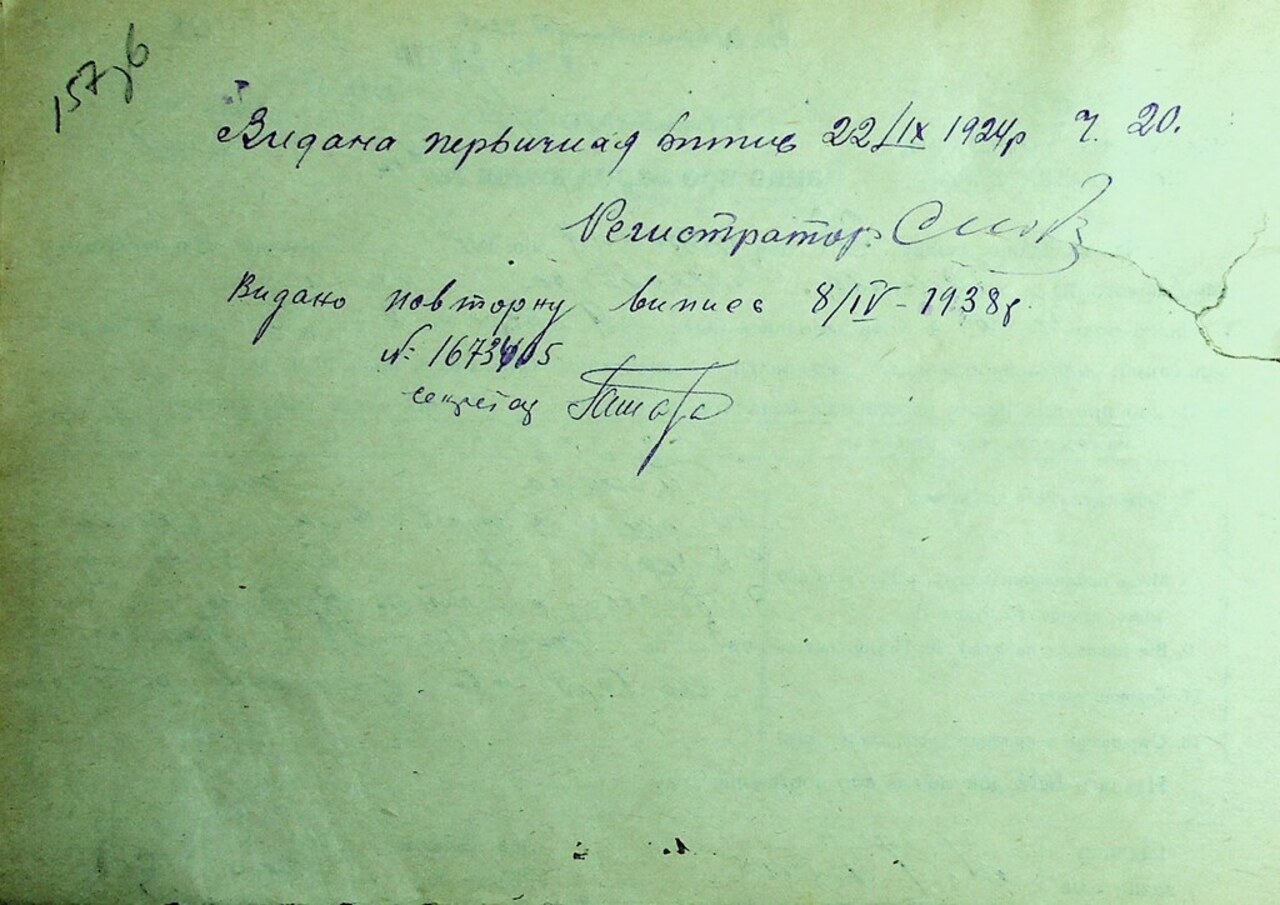 157 зб
Видана первичная витис 22/IX 1924р ч. 20.
Регистратор:
Видано повторну випись 8/IV-1938р.
№ 1673405
секретар